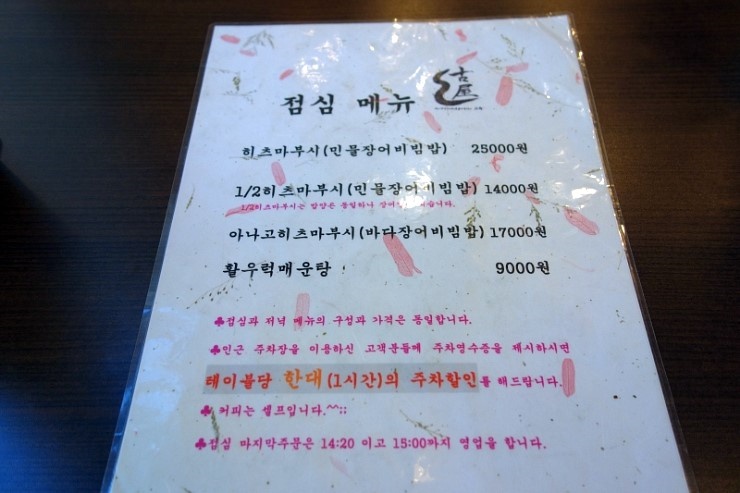 점심 메뉴 古屋
히츠마부시(민물장어비빔밥) 25000원
1/2히츠마부시(민물장어비빔밥) 14000원
1/2히츠마부시는 밥양은 동일하나
아나고히츠마부시(바다장어비빔밥) 17000원
활우럭매운탕 9000원
♣점심과 저녁 메뉴의 구성과 가격은 동일합니다.
♣인근 주차장을 이용하신 고객분들께 주차영수증을 제시하시면
테이블당 한대(1시간)의 주차할인를 해드립니다.
♣ 커피는 셀프입니다.^^;;
♣점심 마지막주문은 14:20 이고 15:00까지 영업을 합니다.